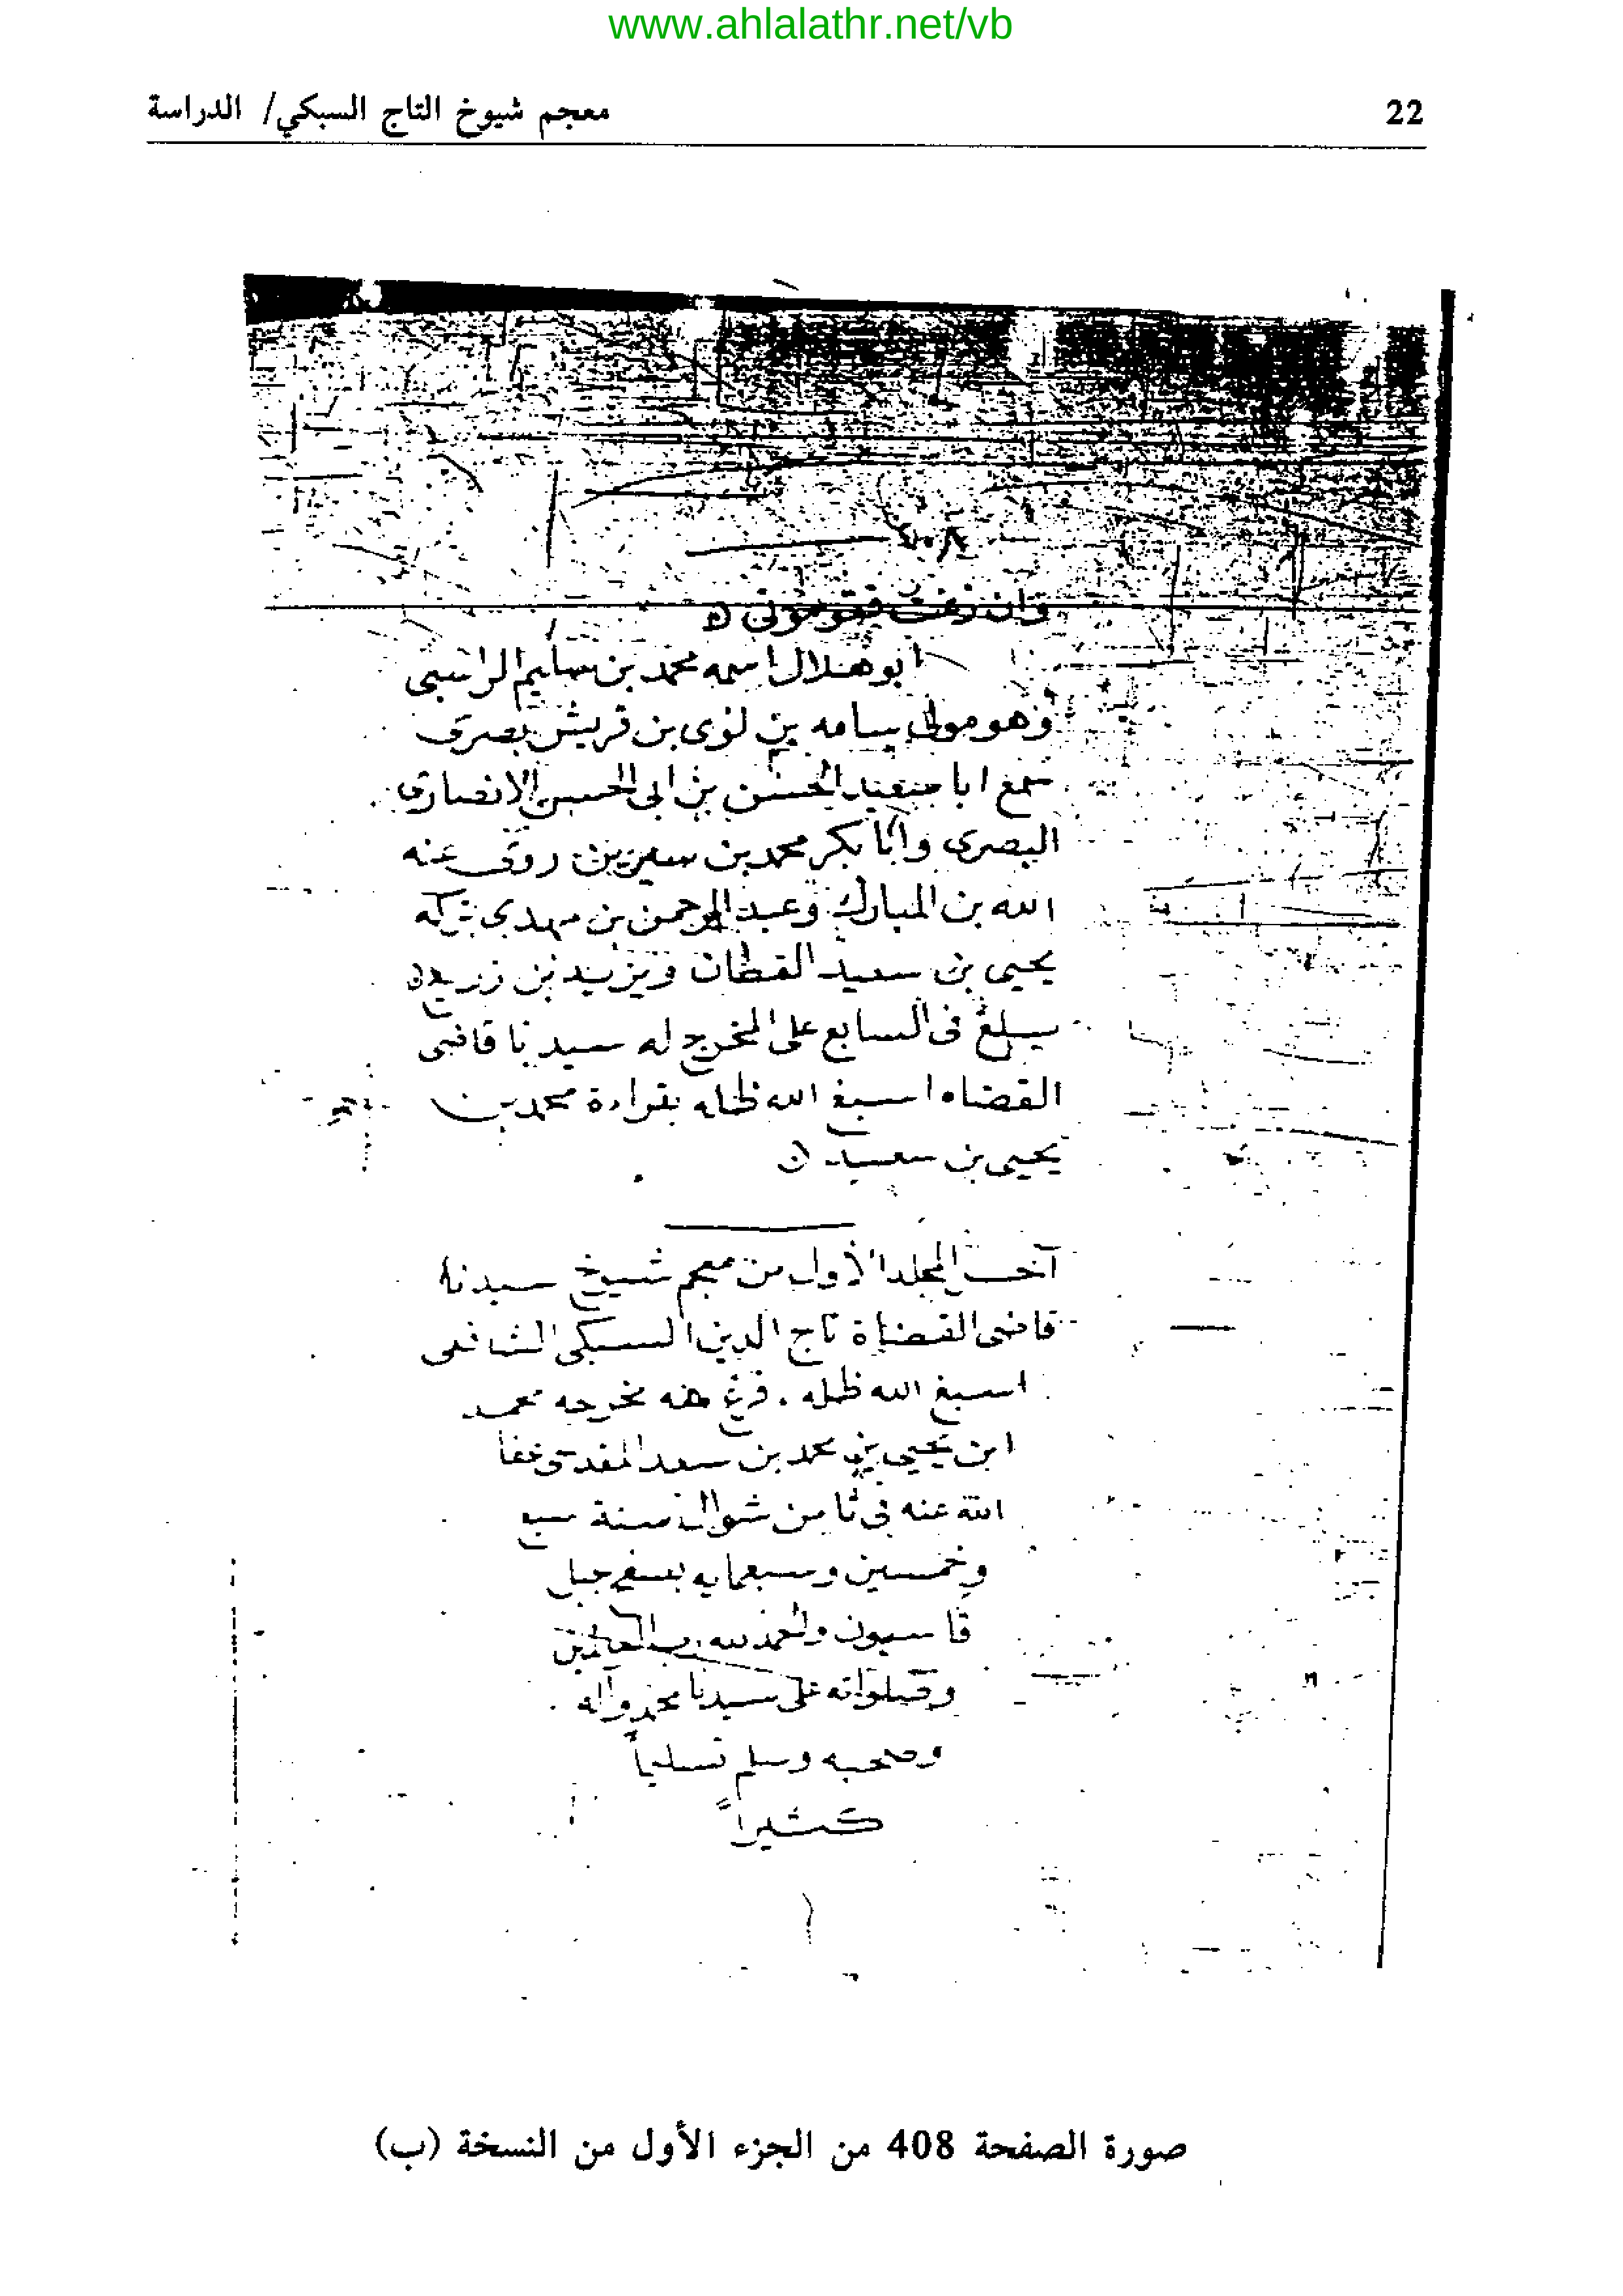 www.ahlalathr.net/vb
22
معجم شيوخ التاج السبكي/ الدراسة
٤٠٨
وان زغت فقوموني ه
ابو هلال اسمه محمد بن سليم الراسبى
وهو مولى سامه بن لؤى بن قريش بصرى
سمع ابا سعيد الحسن بن ابى الحسن الانصارى
البصرى وابا بكر محمد بن سيرين روى عنه
الله بن المبارك وعبد الرحمن بن مهدى تركه
يحيى بن سعيد القطان ويزيد بن زريع ه
بلغ فى السابع على المخرج له سيدنا قاضى
القضاه اسبغ الله ظله بقراءة محمد بن
يحيى بن سعيد ه
آخر المجلد الأول من معجم شيوخ سيدنا
قاضى القضاة تاج الدين السبكى الشافعى
اسبغ الله ظله . فرغ منه مخرجه محمد
ابن يحيى بن محمد بن سعد المقدسى عفا
الله عنه فى ثامن شوال سنة سبع
وخمسين وسبعمايه بسفح جبل
قاسيون والحمد لله رب العالمين
وصلواته على سيدنا محمد وآله
وصحبه وسلم تسليماً
كثيراً
صورة الصفحة 408 من الجزء الأول من النسخة (ب)